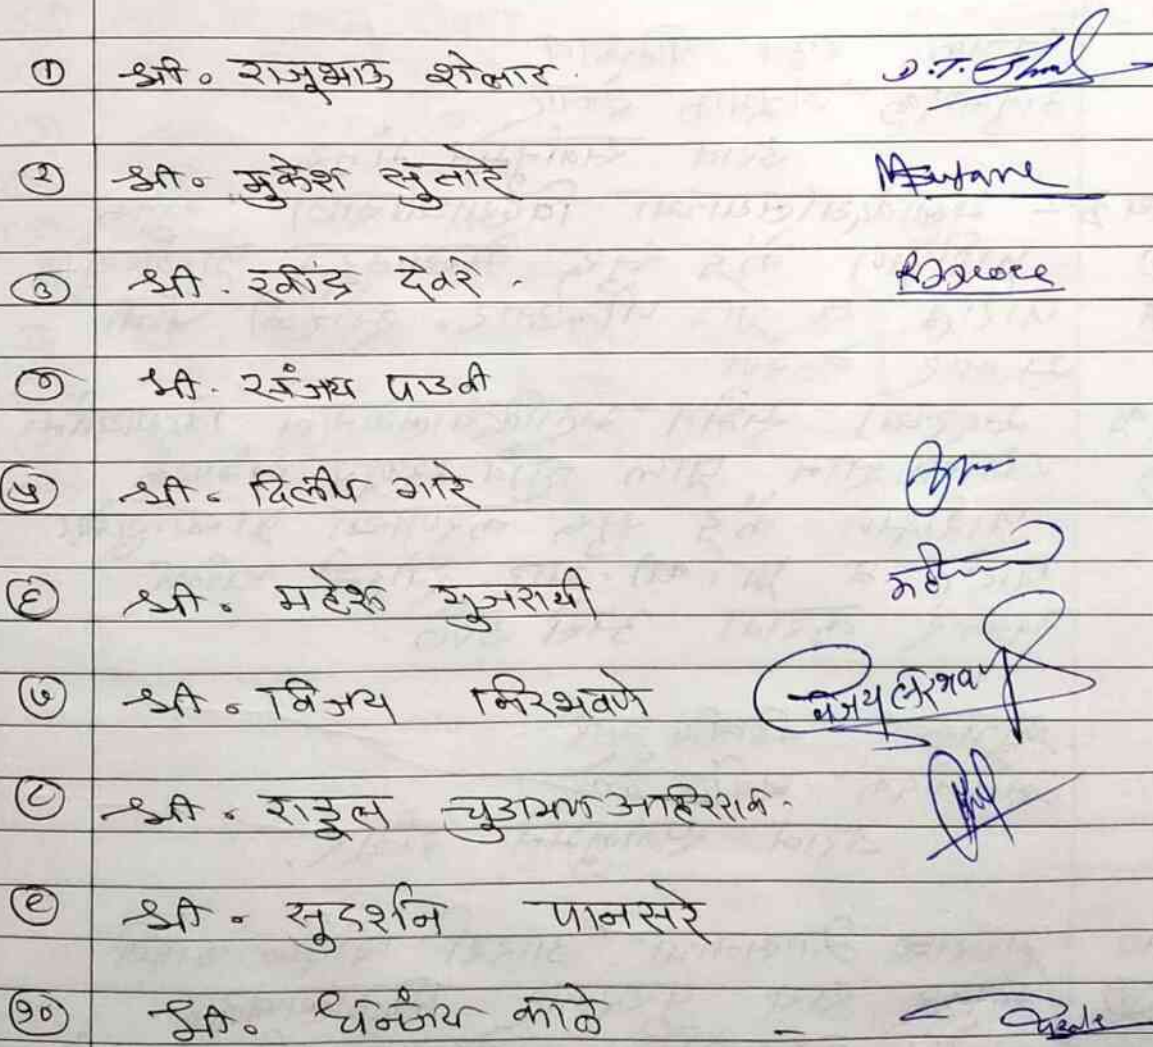 ① श्री. राजूभाऊ शेलार. D.T. Shel
② श्री. मुकेश सुतारे
③ श्री. रवींद्र देवरे.
④ श्री. संजय पाडवी
⑤ श्री. दिलीप गारे
⑥ श्री. महेश गुजराथी महे
⑦ श्री. विजय निरभवणे विजय निरभवणे
⑧ श्री. राहुल चुडामण आहिरराव.
⑨ श्री. सुदर्शन पानसरे
⑩ श्री. धनंजय काळे -